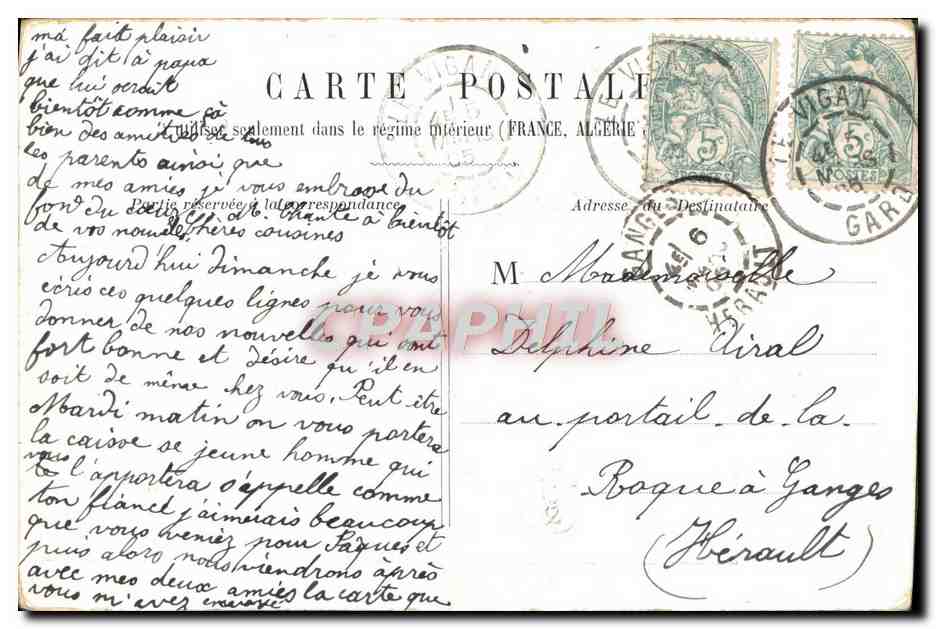 CARTE POSTALE
A utiliser seulement dans le régime intérieur (FRANCE, ALGERIE
Partie réservée à la correspondance
Adresse du Destinataire
Aujourd'hui dimanche je vous
écris ces quelques lignes pour vous
donner de nos nouvelles qui sont
fort bonne et désire qu'il en
soit de même chez vous. Peut être
Mardi matin on vous portera
la caisse se jeune homme qui
vous l'apportera s'appelle comme
ton fiancé j'aimerais beaucoup
que vous veniez pour Pâques et
puis alors nous viendrons après
avec mes deux amies la carte que
vous m'avez envoyé
m'a fait plaisir
j'ai dit à papa
que lui serait
bientôt comme ça
bien des amitiés de tous
les parents ainsi que
de mes amies je vous embrasse du
fond du cœur à bientôt
de vos nouvelles chères cousines
M Mademoiselle
Delphine Airal
au portail de la
Roque à Ganges
(Hérault)
LE VIGAN
GARD
LE VIGAN
LE VIGAN
GARD
GANGES
6
HERAULT
5c
5c
CPAPHIL